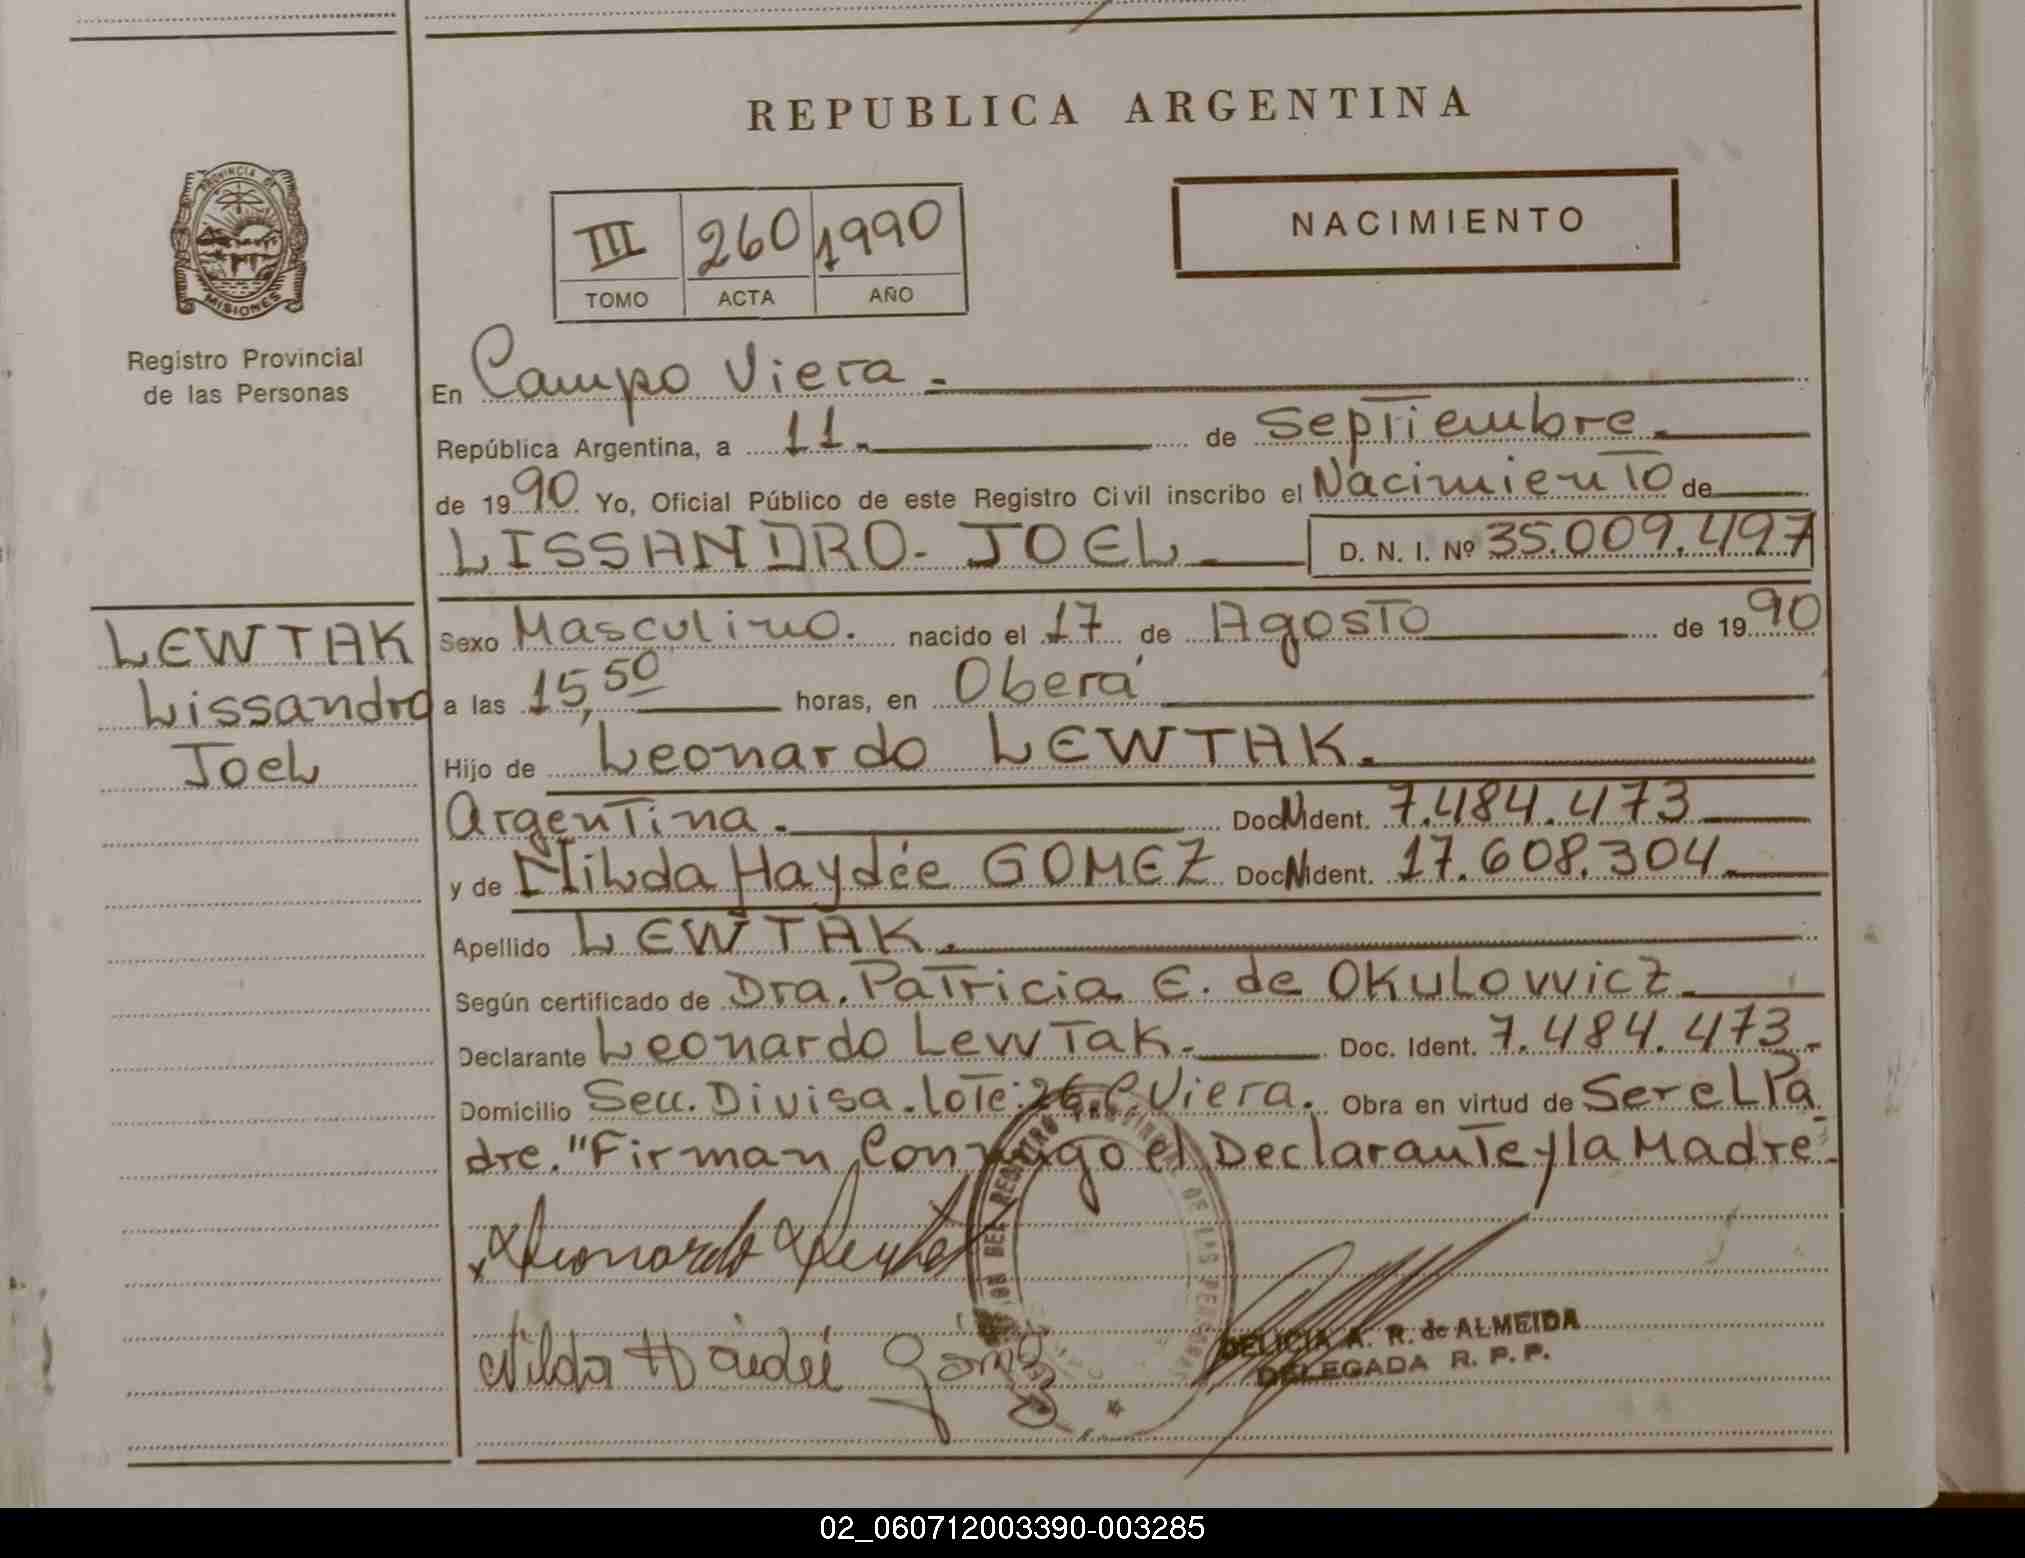 REPUBLICA ARGENTINA
PROVINCIA DE
MISIONES
Registro Provincial
de las Personas
III 260 1990
TOMO ACTA AÑO
NACIMIENTO
En Campo Viera.-
República Argentina, a 11.- de Septiembre.-
de 1990 Yo, Oficial Público de este Registro Civil inscribo el Nacimiento de
LISSANDRO. JOEL D. N. I. Nº 35.009.497
LEWTAK
Lissandro
Joel
Sexo Masculino. nacido el 17 de Agosto de 1990
a las 15,50 horas, en Oberá
Hijo de Leonardo LEWTAK.
Argentina.- Doc. Ident. 7.484.473
y de Nilda Haydée GOMEZ Doc. Ident. 17.608.304
Apellido LEWTAK.
Según certificado de Dra. Patricia E. de OKULOWICZ
Declarante Leonardo Lewtak.- Doc. Ident. 7.484.473.-
Domicilio Secc. Divisa. lote: 26. C Viera. Obra en virtud de Ser el Pa
dre. "Firman Conmigo el Declarante y la Madre.-
Leonardo Leuta
Nilda Haideé Gomez
DELICIA A. R. de ALMEIDA
DELEGADA R. P. P.
02_060712003390-003285